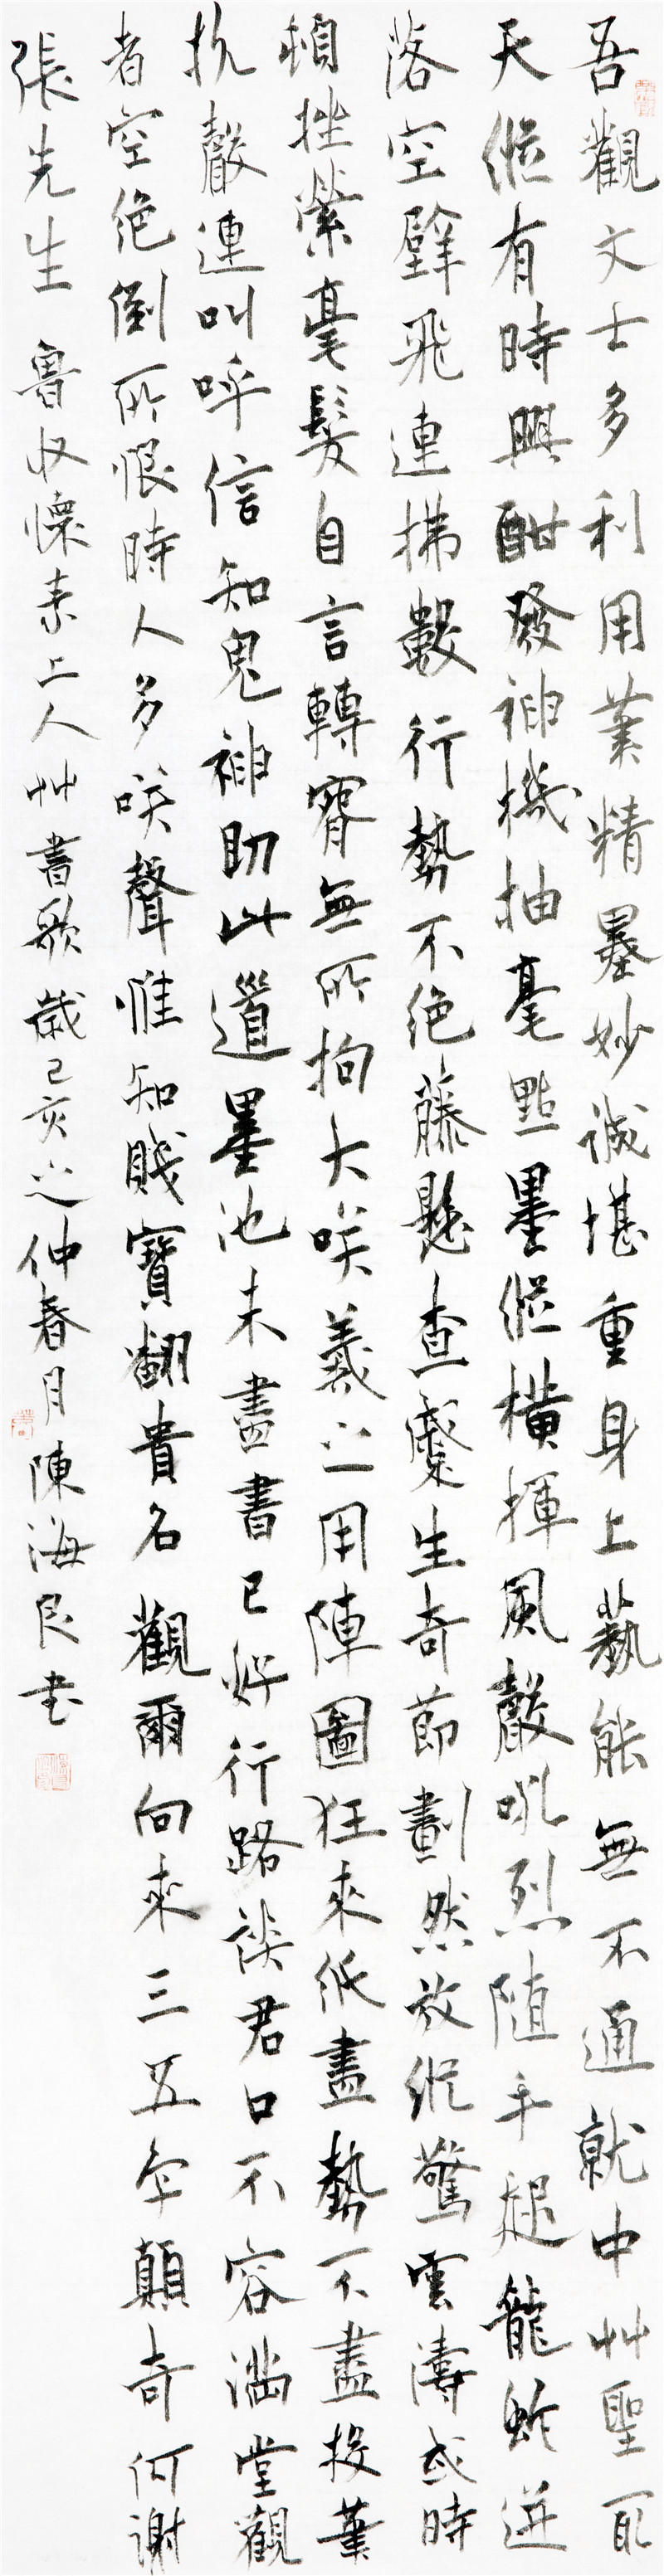 吾觀文士多利用筆精墨妙誠堪重身上藝能無不通就中艸聖冣
天縱有時興酣發神機抽毫點墨縱橫揮風聲吼烈隨手起龍蛇迸
落空壁飛連拂數行勢不絕藤懸查蹙生奇節劃然放縱驚雲濤或時
頓挫縈毫髮自言轉腕無所拘大笑羲之用陣圖狂來紙盡勢不盡投筆
抗聲連叫呼信知鬼神助此道墨池未盡書已好行路談君口不容滿堂觀
者空絕倒所恨時人多笑聲惟知賤寶翻貴名觀爾向來三五字顛奇何謝
張先生 魯收懷素上人艸書歌歲己亥之仲春月陳海良书